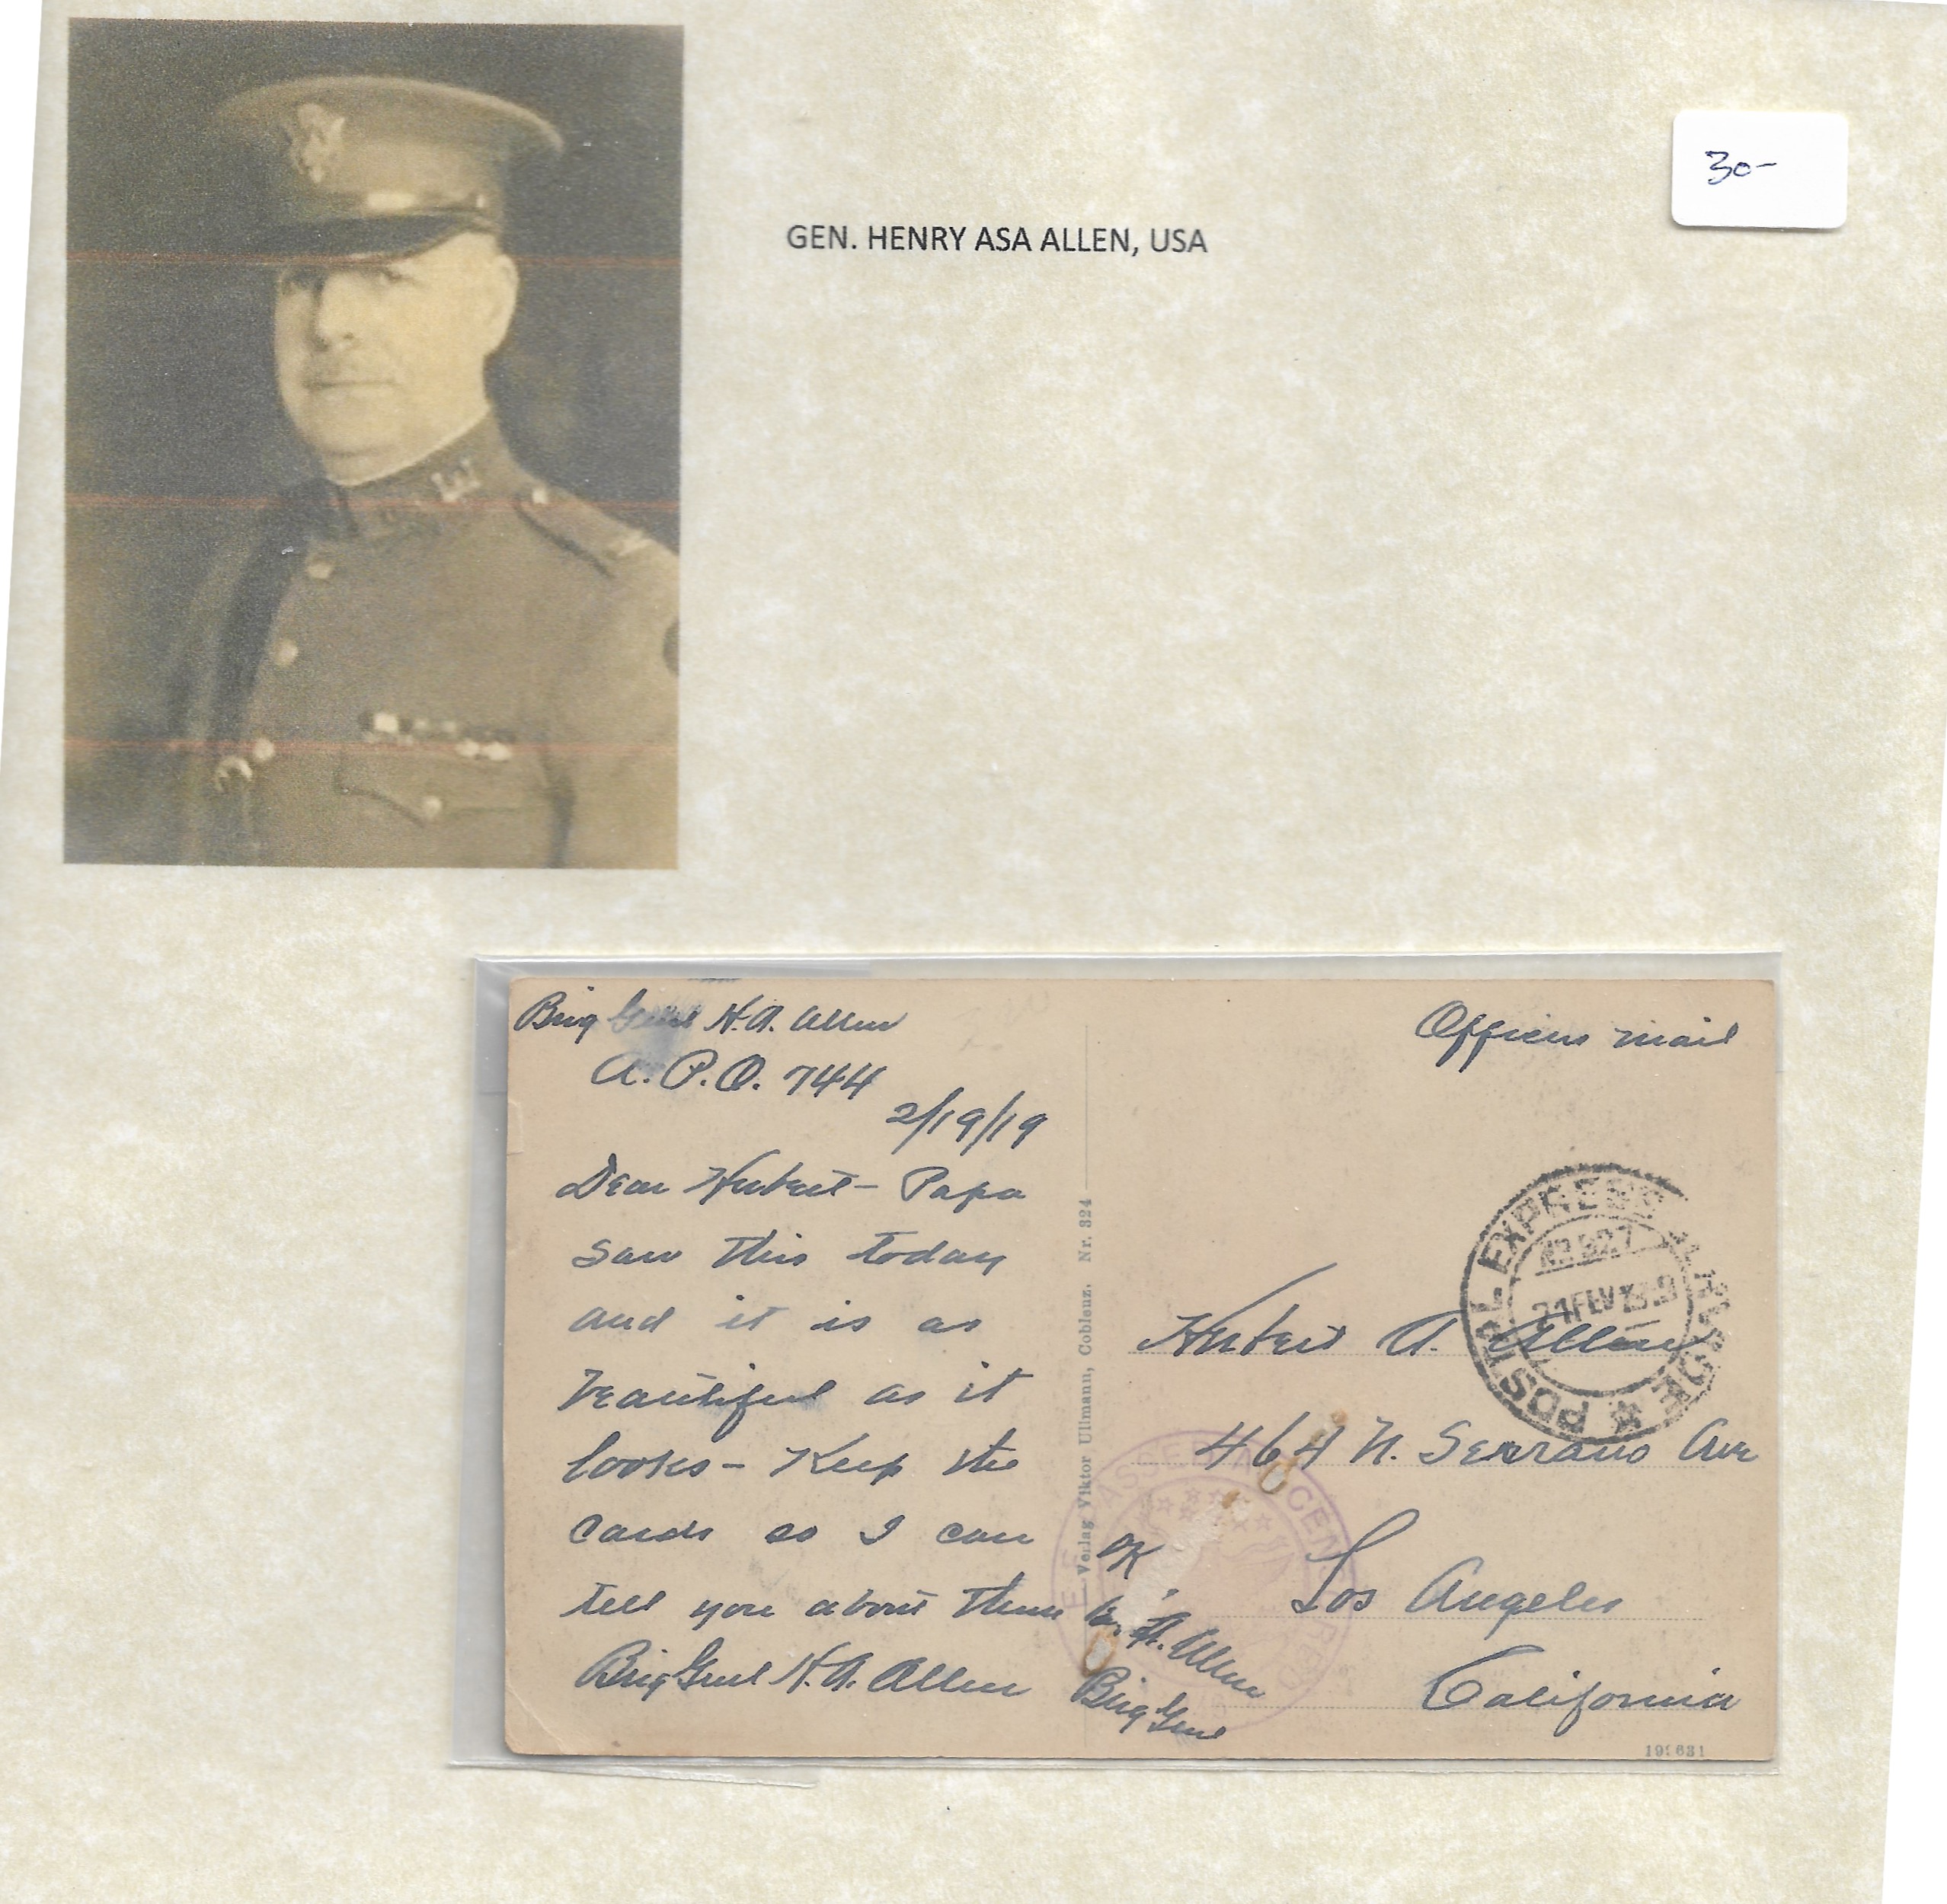 30-
GEN. HENRY ASA ALLEN, USA
Brig Genl H. A. Allen
A. P. O. 744
2/19/19
Dear Hubert - Papa
saw this today
and it is as
beautiful as it
looks - Keep the
cards so I can
tell you about them
Brig Genl H. A. Allen
Verlag Viktor Ullmann, Coblenz. Nr. 324
Officers mail
POSTAL EXPRESS
21 FEV
Hubert A. Allen
464 N. Serrano Ave
Los Angeles
California
OK
H. A. Allen
Brig Genl
A.E.F. PASSED CENSORED